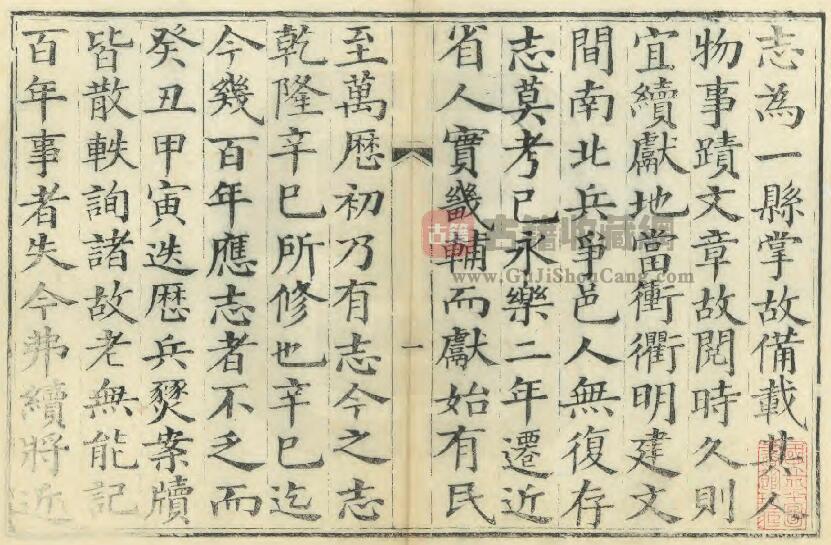 志為一縣掌故備載其人
物事蹟文章故閱時久則
宜續獻地當衝衢明建文
間南北兵爭邑人無復存
志莫考已永樂二年遷近
省人實畿輔而獻始有民
一
至萬厯初乃有志今之志
乾隆辛巳所修也辛巳迄
今幾百年應志者不乏而
癸丑甲寅迭厯兵燹案牘
皆散軼詢諸故老無能記
百年事者失今弗續將近
古籍
古籍收藏網
www.GuJiShouCang.com